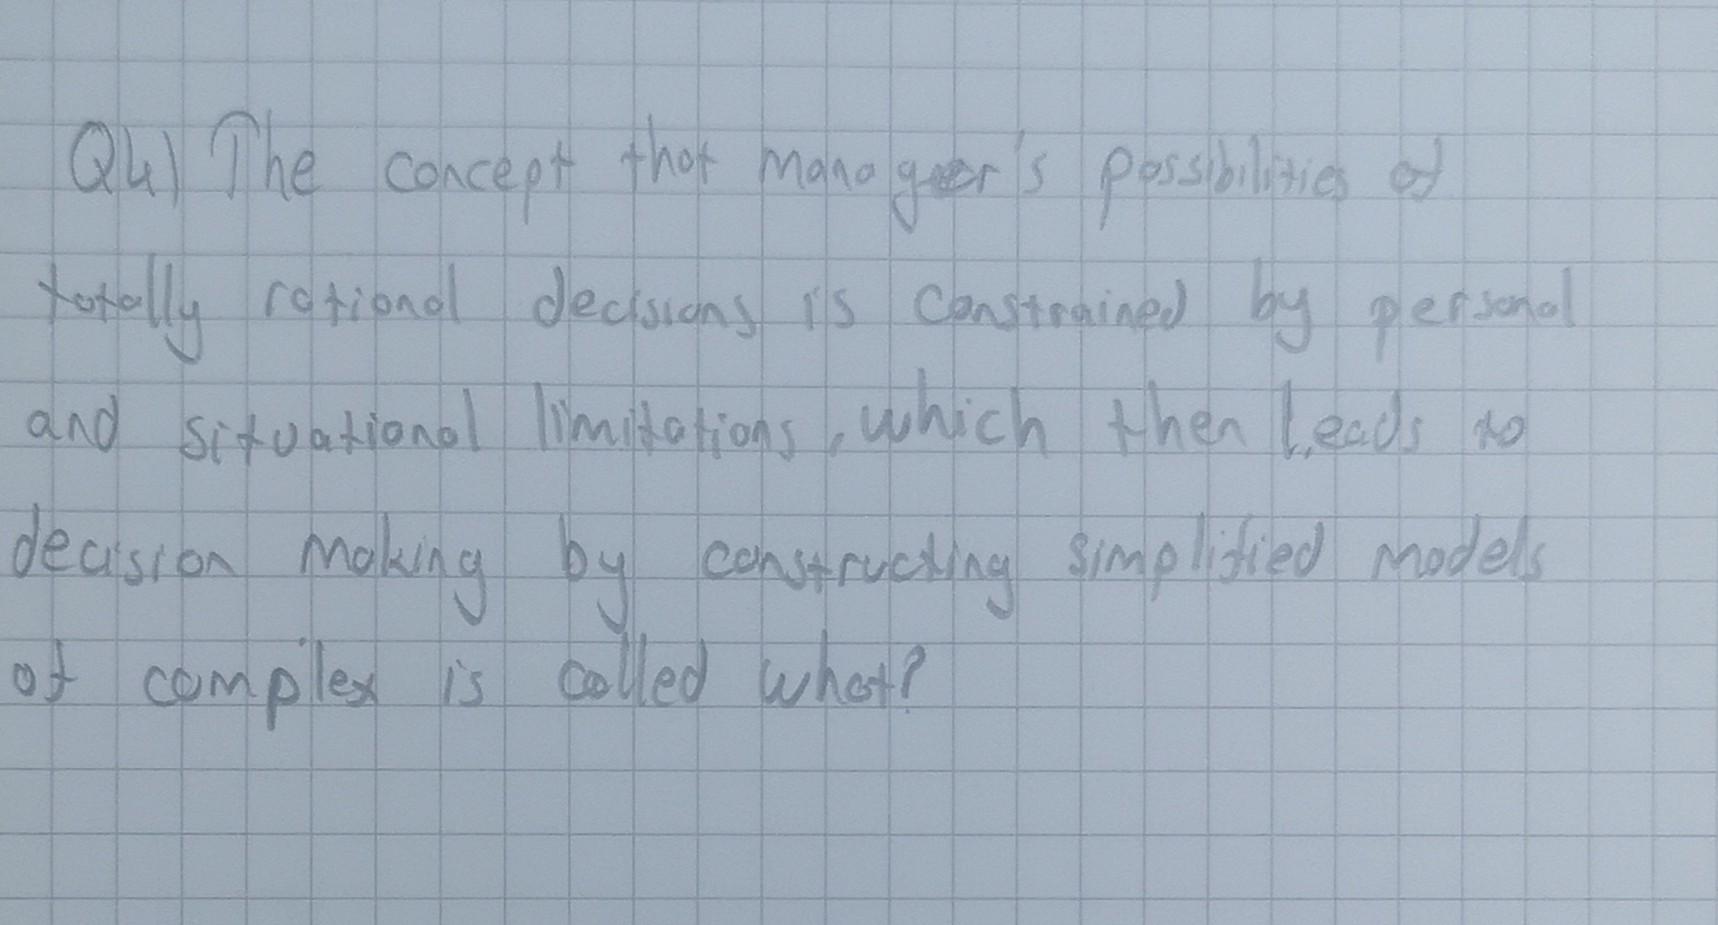 Q4) The concept that manager's possibilities of
totally rational decisions is constrained by personal
and situational limitations, which then leads to
decision making by constructing simplified models
of complex is called what?